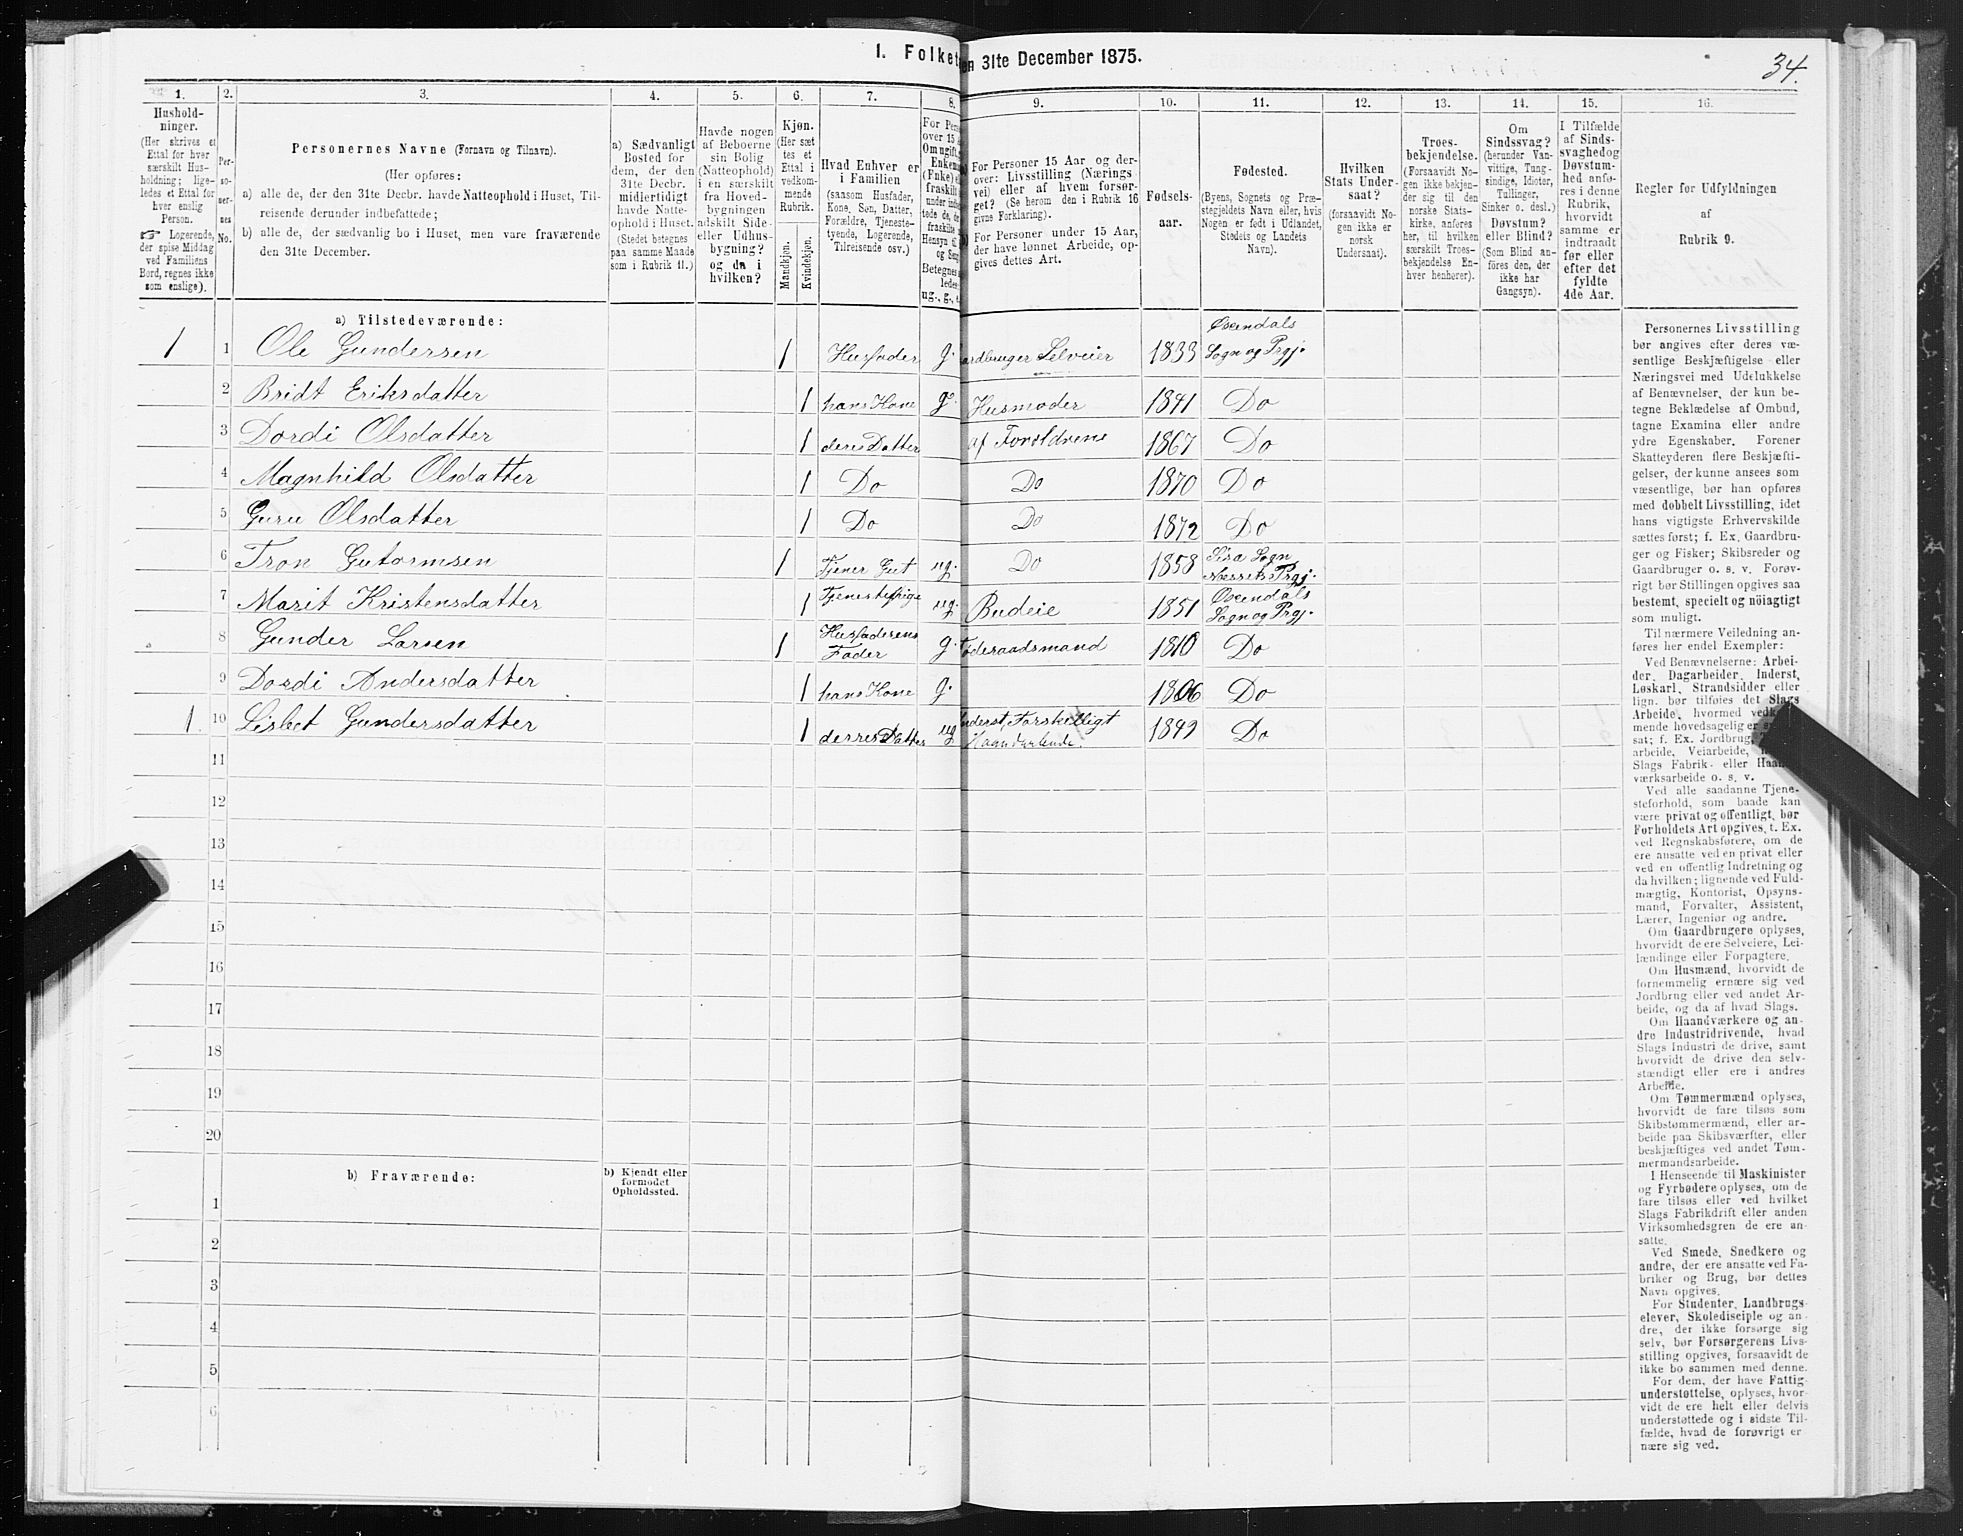 1. Folket en 31te December 1875.
34.
1. 2. 3. 4. 5. 6. 7. 8. 9. 10. 11. 12. 13. 14. 15. 16.
Hushold-
ninger.
(Her skrives et
Ettal for hver
særskilt Hus-
holdning; lige-
ledes et Ettal for
hver enslig
Person.
☞ Logerende,
der spise Middag
ved Familiens
Bord, regnes ikke
som enslige).
Per-
so-
ner-
nes
No.
Personernes Navne (Fornavn og Tilnavn).
(Her opføres:
a) alle de, der den 31te Decbr. havde Natteophold i Huset, Til-
reisende derunder indbefattede;
b) alle de, der sædvanlig bo i Huset, men vare fraværende
den 31te December.
a) Sædvanligt
Bosted for
dem, der den
31te Decbr.
midlertidigt
havde Natte-
ophold i Huset.
(Stedet betegnes
paa samme Maade
som i Rubrik 11.)
Havde nogen
af Beboerne
sin Bolig
(Natteophold)
i en særskilt
fra Hoved-
bygningen
adskilt Side-
eller Udhus-
bygning?
og da i
hvilken?
Kjøn.
(Her sæt
tes et
Ettal i
vedkom-
mende
Rubrik.
Mandkjøn.
Kvindekjøn.
Hvad Enhver er
i Familien
(saasom Husfader,
Kone, Søn, Datter,
Forældre, Tjeneste-
tyende, Logerende,
Tilreisende osv.)
For Pers
over 15 A
Om ugift,
Enkem
(Enke) e
fraskilt
under indb
tede de, de
fraskilte
Hensyn til
og Seng
Betegnes
ledes
ug., g., e.
For Personer 15 Aar og der-
over: Livsstilling (Nærings
vei) eller af hvem forsør-
get? (Se herom den i Rubrik 16
givne Forklaring).
For Personer under 15 Aar,
der have lønnet Arbeide, op-
gives dettes Art.
Fødsels-
aar.
Fødested.
(Byens, Sognets og Præ-
stegjeldets Navn eller, hvis
Nogen er født i Udlandet,
Stedets og Landets
Navn).
Hvilken
Stats Under-
saat?
(forsaavidt No-
gen ikke er
norsk
Undersaat).
Troes-
bekjendelse.
(Forsaavidt No-
gen ikke bekjen-
der sig til den
norske Stats-
kirke, anføres
her, til hvilken
særskilt Troes-
bekjendelse En-
hver henhører).
Om
Sindssvag?
(herunder Van-
vittige, Tung-
sindige, Idioter,
Tullinger,
Sinker o. desl.)
Døvstum?
eller Blind?
(Som Blind an-
føres den, der
ikke har
Gangsyn).
I Tilfælde
af Sinds-
svaghedog
Døvstum-
hed anfø-
res i denne
Rubrik,
hvorvidt
samme er
indtraadt
før eller
efter det
fyldte
4de Aar.
Regler for Udfyldningen
af
Rubrik 9.
a) Tilstedeværende:
1 1 Ole Gundersen 1 Husfader g. Gaardbruger Selveier 1833 Øxendals Sogn og Prgj.
2 Bridt Eriksdatter 1 hans Kone g. Husmoder 1841 Do
3 Dordi Olsdatter 1 deres Datter af Foreldrene 1867 Do
4 Magnhild Olsdatter 1 Do Do 1870 Do
5 Guru Olsdatter 1 Do Do 1872 Do
6 Tron Gutormsen 1 Tjener Gut ug. Do 1858 Sira Sogn Nessets Prgj.
7 Marit Kristensdatter 1 Tjenestepige ug. Budeie 1851 Øxendals Sogn og Prgj.
8 Gunder Larsen 1 Husfaderens Fader g. Føderaadsmand 1810 Do
9 Dordi Andersdatter 1 hans Kone g. 1806 Do
1. 10 Lisbet Gundersdatter 1 derres Datter ug Inderst, Forskelligt Haandarbeide. 1849 Do
11
12
13
14
15
16
17
18
19
20
b) Fraværende:
b) Kjendt eller
formodet
Opholdssted.
1
2
3
4
5
6
Personernes Livsstilling
bør angives efter deres væ-
sentlige Beskjæftigelse eller
Næringsvei med Udelukkelse
af Benævnelser, der kun be-
tegne Beklædelse af Ombud,
tagne Examina eller andre
ydre Egenskaber. Forener
Skatteyderen flere Beskjæfti-
gelser, der kunne ansees som
væsentlige, bør han opføres
med dobbelt Livsstilling, idet
hans vigtigste Erhvervskilde
sættes først; f. Ex. Gaardbru-
ger og Fisker; Skibsreder og
Gaardbruger o. s. v. Forøv-
rigt bør Stillingen opgives saa
bestemt, specielt og nöiagtigt
som muligt.
Til nærmere Veiledning an-
føres her endel Exempler:
Ved Benævnelserne: Arbei-
der, Dagarbeider, Inderst,
Løskarl, Strandsidder eller
lign. bør tilføies det Slags
Arbeide, hvormed
mende hovedsagelig er
sat; f. Ex. Jordbrug,
arbeide, Veiarbeide,
Slags Fabrik- eller Haand-
værksarbeide o. s. v.
Ved alle saadanne Tjene-
steforhold, som baade kan
være privat og offentligt, bør
Forholdets Art opgives, t. Ex.
ved Regnskabsførere, om de
ere ansatte ved en privat eller
ved en offentlig Indretning og
da hvilken; lignende ved Fuld-
mægtig, Kontorist, Opsyns-
mand, Forvalter, Assistent,
Lærer, Ingeniør og andre.
Om Gaardbrugere oplyses,
hvorvidt de ere Selveiere, Lei-
lændinge eller Forpagtere.
Om Husmænd, hvorvidt de
fornemmelig ernære sig ved
Jordbrug eller ved andet Ar-
beide, og da af hvad Slags.
Om Haandværkere og an-
dre Industridrivende, hvad
Slags Industri de drive, samt
hvorvidt de drive den selv-
stændigt eller ere i andres
Arbeide.
Om Tømmermænd oplyses,
hvorvidt de fare tilsøs som
Skibstømmermænd, eller ar-
beide paa Skibsværfter, eller
beskjæftiges ved andet Tøm-
mermandsarbeide.
I Henseende til Maskinister
og Fyrbødere oplyses, om de
fare tilsøs eller ved hvilket
Slags Fabrikdrift eller anden
Virksomhedsgren de ere an-
satte.
Ved Smede, Snedkere og
andre, der ere ansatte ved Fa-
briker og Brug, bør dettes
Navn opgives.
For Studenter, Landbrugs-
elever, Skoledisciple og an-
dre, der ikke forsørge sig
selv, bør Forsørgerens Livs-
stilling opgives, forsaavidt de
ikke bo sammen med denne.
For dem, der have Fattig-
understøttelse, oplyses, hvor-
vidt de ere helt eller delvis
understøttede og i sidste Til-
fælde, hvad de forøvrigt er
nære sig ved.